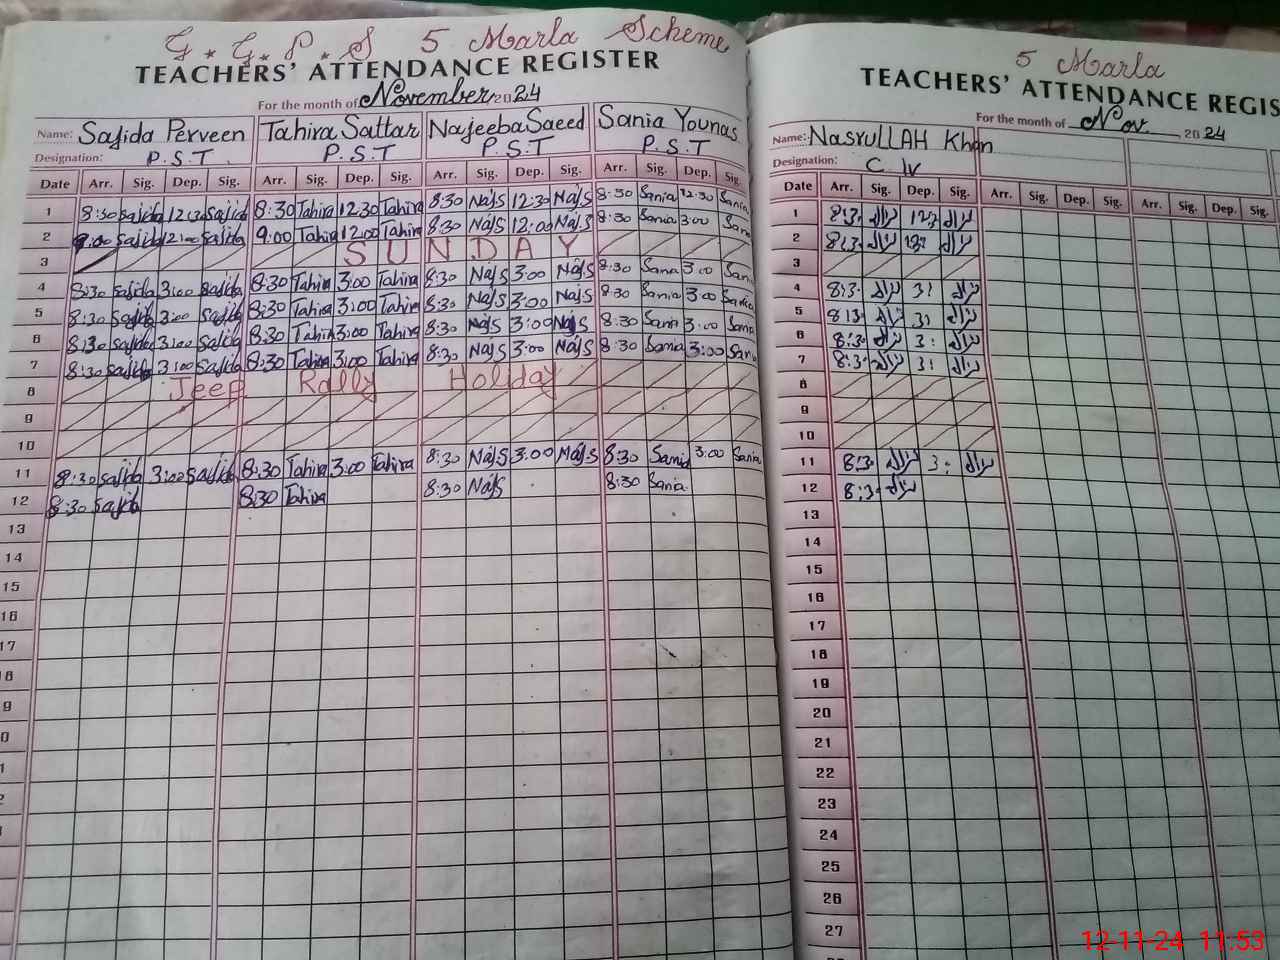 G. G. P. S 5 Marla Scheme
TEACHERS' ATTENDANCE REGISTER
For the month of November 2024
Name: Sajida Perveen Tahira Sattar Najeeba Saeed Sania Younas
Designation: P.S.T P.S.T P.S.T P.S.T
Date Arr. Sig. Dep. Sig. Arr. Sig. Dep. Sig. Arr. Sig. Dep. Sig. Arr. Sig. Dep. Sig.
1 8:30 Sajida 12:30 Sajida 8:30 Tahira 12:30 Tahira 8:30 NajS 12:30 NajS 8:30 Sania 12:30 Sania
2 9:00 Sajida 12:00 Sajida 9:00 Tahira 12:00 Tahira 8:30 NajS 12:00 NajS 8:30 Sania 3:00 Sania
3 SUNDAY
4 8:30 Sajida 3:00 Sajida 8:30 Tahira 3:00 Tahira 8:30 NajS 3:00 NajS 8:30 Sania 3:00 Sania
5 8:30 Sajida 3:00 Sajida 8:30 Tahira 3:00 Tahira 8:30 NajS 3:00 NajS 8:30 Sania 3:00 Sania
6 8:30 Sajida 3:00 Sajida 8:30 Tahira 3:00 Tahira 8:30 NajS 3:00 NajS 8:30 Sania 3:00 Sania
7 8:30 Sajida 3:00 Sajida 8:30 Tahira 3:00 Tahira 8:30 NajS 3:00 NajS 8:30 Sania 3:00 Sania
8 Jeep Rally Holiday
9
10
11 8:30 Sajida 3:00 Sajida 8:30 Tahira 3:00 Tahira 8:30 NajS 3:00 NajS 8:30 Sania 3:00 Sania
12 8:30 Sajida 8:30 Tahira 8:30 NajS 8:30 Sania
13
14
15
16
17
18
9
0
1
2
5 Marla
TEACHERS' ATTENDANCE REGIS
For the month of Nov. 2024
Name: NasrULLAH Khan
Designation: C IV
Date Arr. Sig. Dep. Sig. Arr. Sig. Dep. Sig. Arr. Sig. Dep. Sig.
1 8:3.
2 8:3.
3
4 8:3. 3:
5 8:3. 3:
6 8:3. 3:
7 8:3. 3:
8
9
10
11 8:3. 3:
12 8:3.
13
14
15
16
17
18
19
20
21
22
23
24
25
26
27
12-11-24 11:53